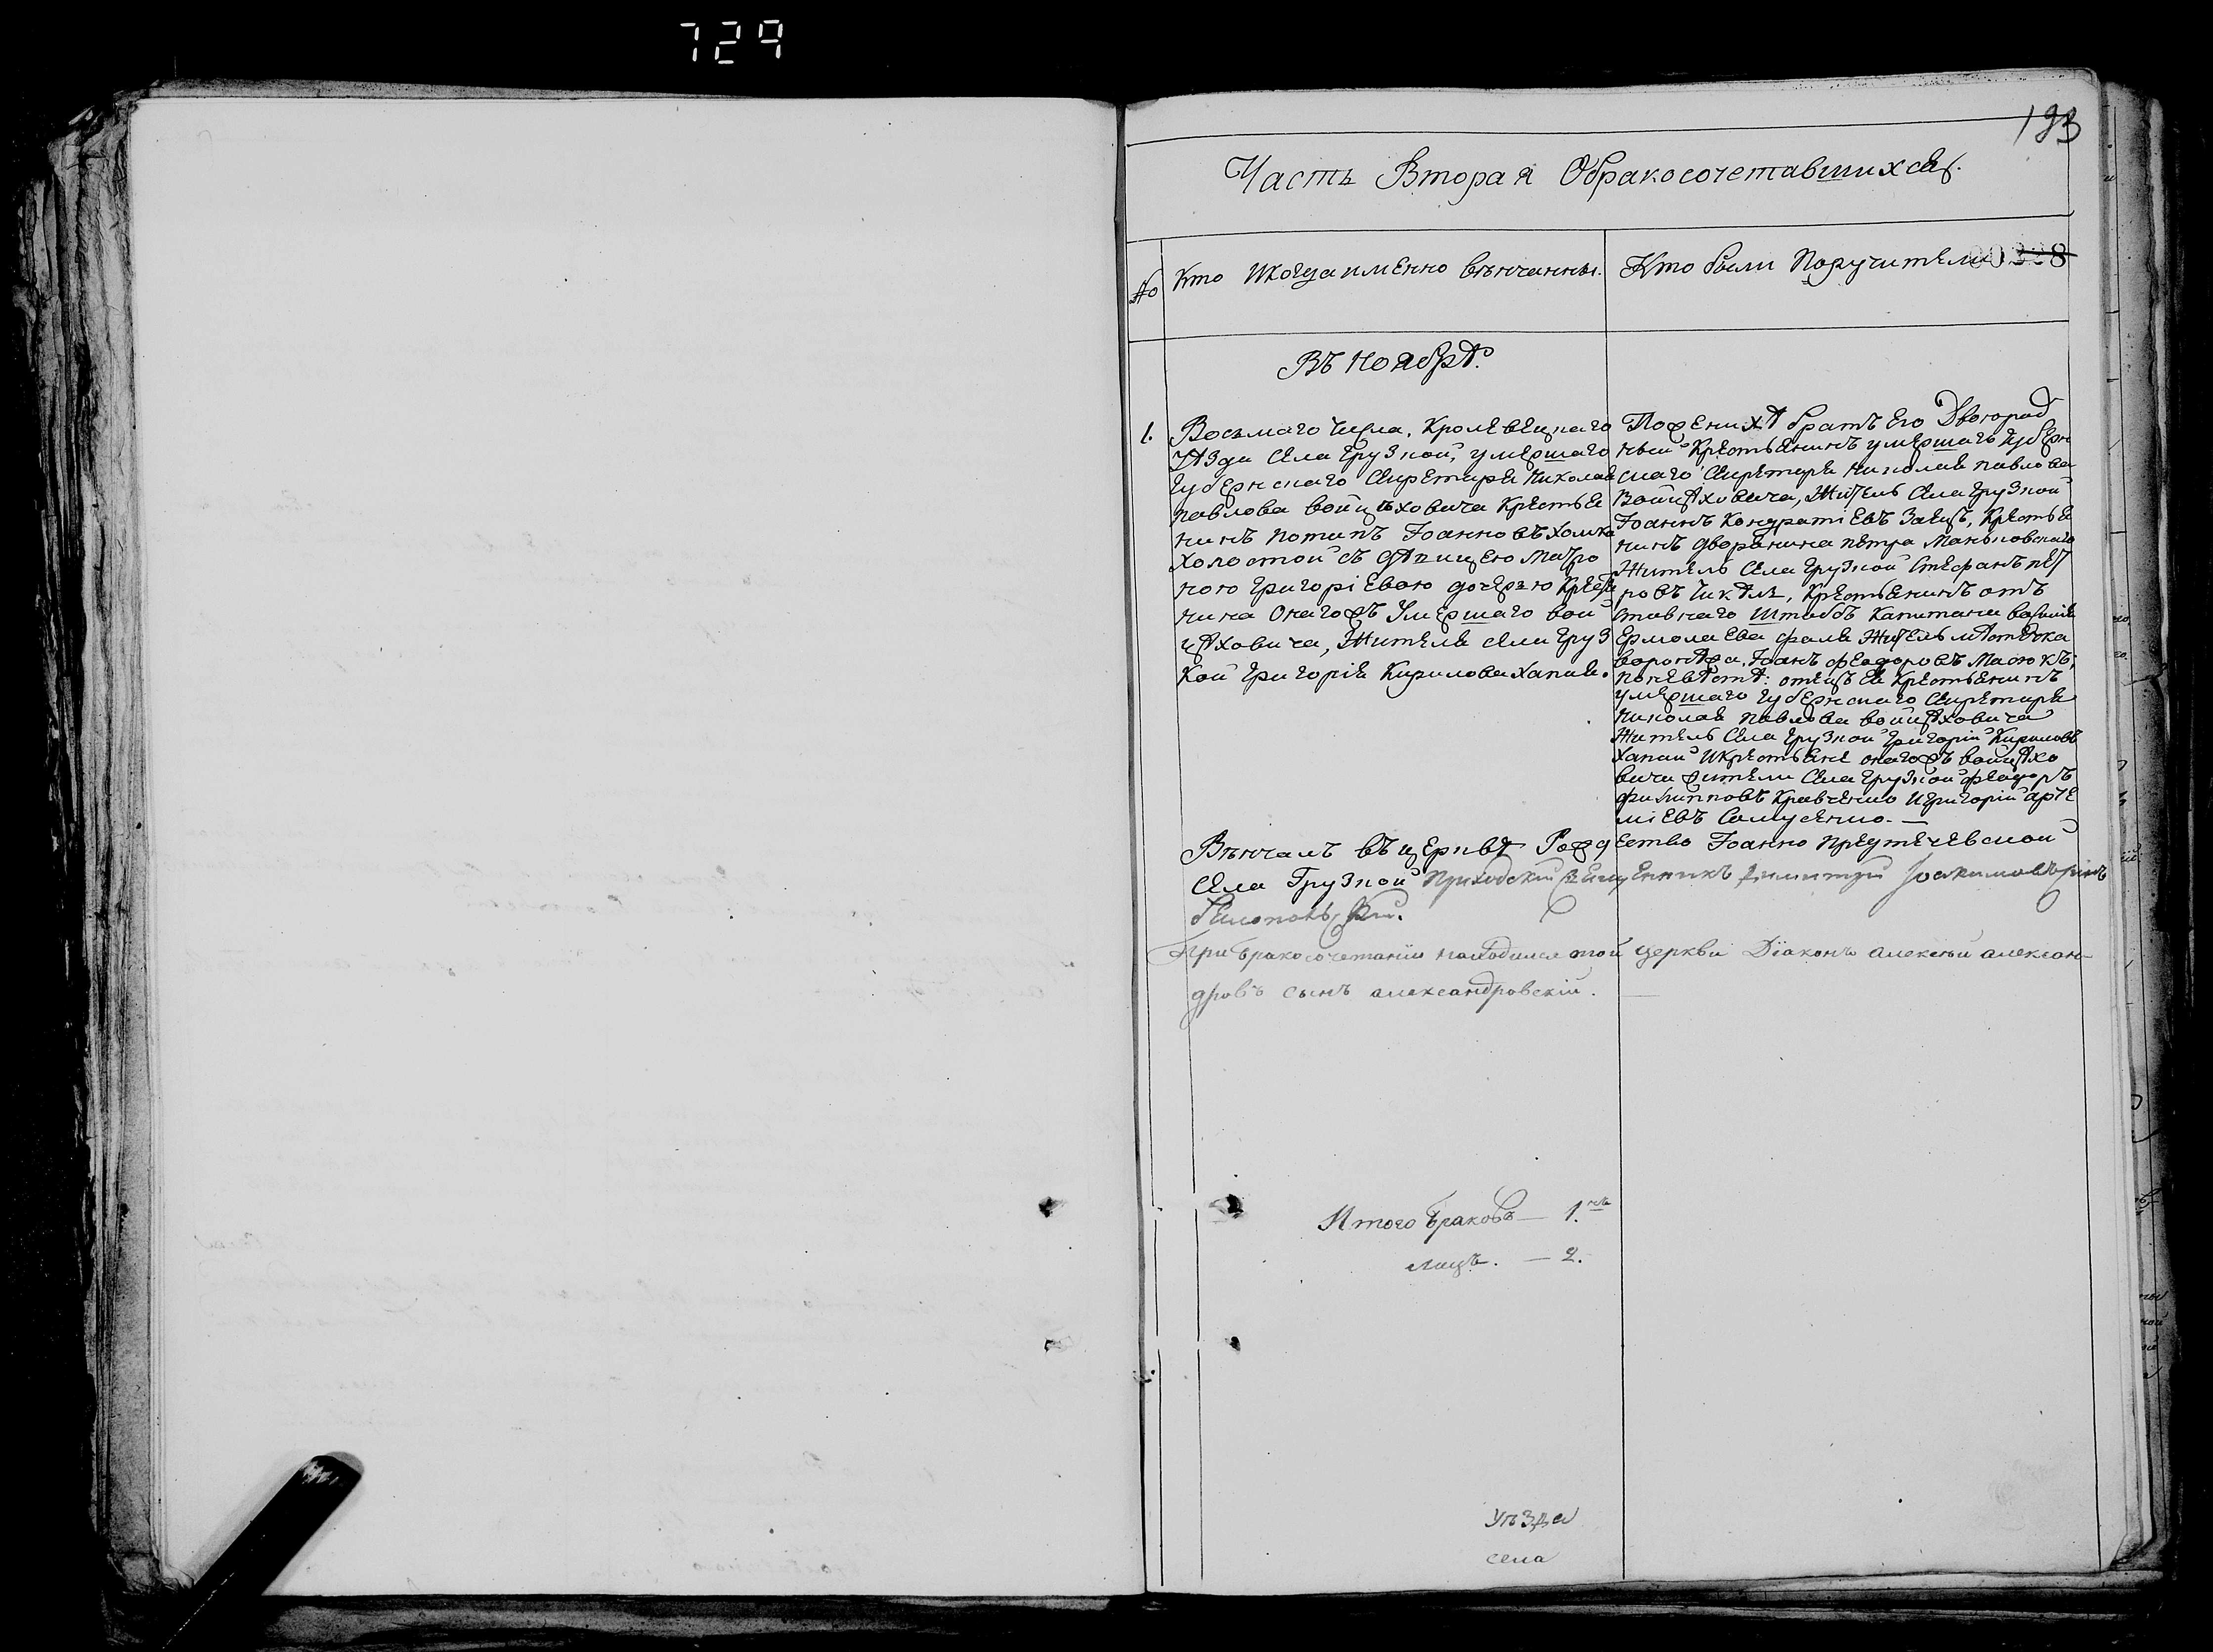 729
193
Часть Вторая Обракосочетавшихся.
№ Кто Икогда именно вѣнчанны. Кто были Поручители 00328
Въ Ноябрѣ.
1. Восьмаго Числа, Кролевецкаго
Уѣзда Села Грузкой, умершаго
Губернскаго Секретаря Николая
павлова войцѣховича Крестья
нинъ потапъ Іоанновъ
Холостой съ дѣвицею Матро
ною Григоріевою дочерью Крестья
нина Онагожъ Умершаго вой
цѣховича, Жителя села Груз
кой Григорія Кирилова Хапая.
Поженихѣ братъ Его Двоюрод
ный Крестьянинъ умершаго Губерн
скаго Секретаря Николая павлова
Войцѣховича, Житель Села Грузкой
Іоаннъ Кондратіевъ Заецъ, Крестья
нинъ дворянина петра Маньковскаго
Житель Села Грузкой Стефанъ пет
ровъ, Крестьянинъ отъ
ставнаго Штабсъ Капитана василія
Ермолаева Житель мѣстечка
воронѣжа, Іоанъ феодоровъ Масюкъ;
поневѣстѣ: отецъ Ея Крестьянинъ
умершаго Губернскаго Секретаря
Николая павлова войцѣховича
Житель Села Грузкой Григорій Кириловъ
Хапай Икрестьяне онагожъ войцѣхо
вича жители Села Грузкой феодоръ
филипповъ Кравченко Игригорій арте
міевъ Самусенко. —
Вѣнчалъ въ церквѣ Рождество Іоанно предтечевской
Села Грузкой Приходскій Священникъ Димитрій Іоакимовъ сынъ
При бракосочетаніи находился той церкви Діаконъ алексѣй алексан-
дровъ сынъ александровскій. —
Итого браковъ — 1.
лицъ. — 2.
уѣзда
села